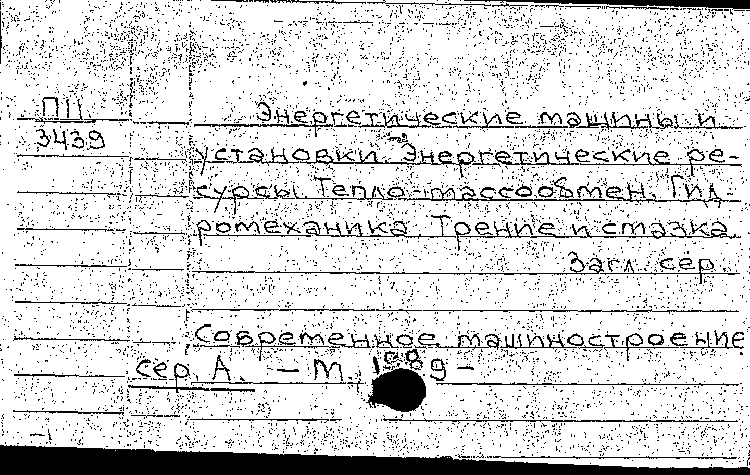 ПII
3439
Энергетические машины и
установки. Энергетические ре-
сурсы. Тепло-массообмен. Гид-
ромеханика. Трение и смазка.
Загл. сер.
Современное машиностроение
сер. А. – М., 1989 –